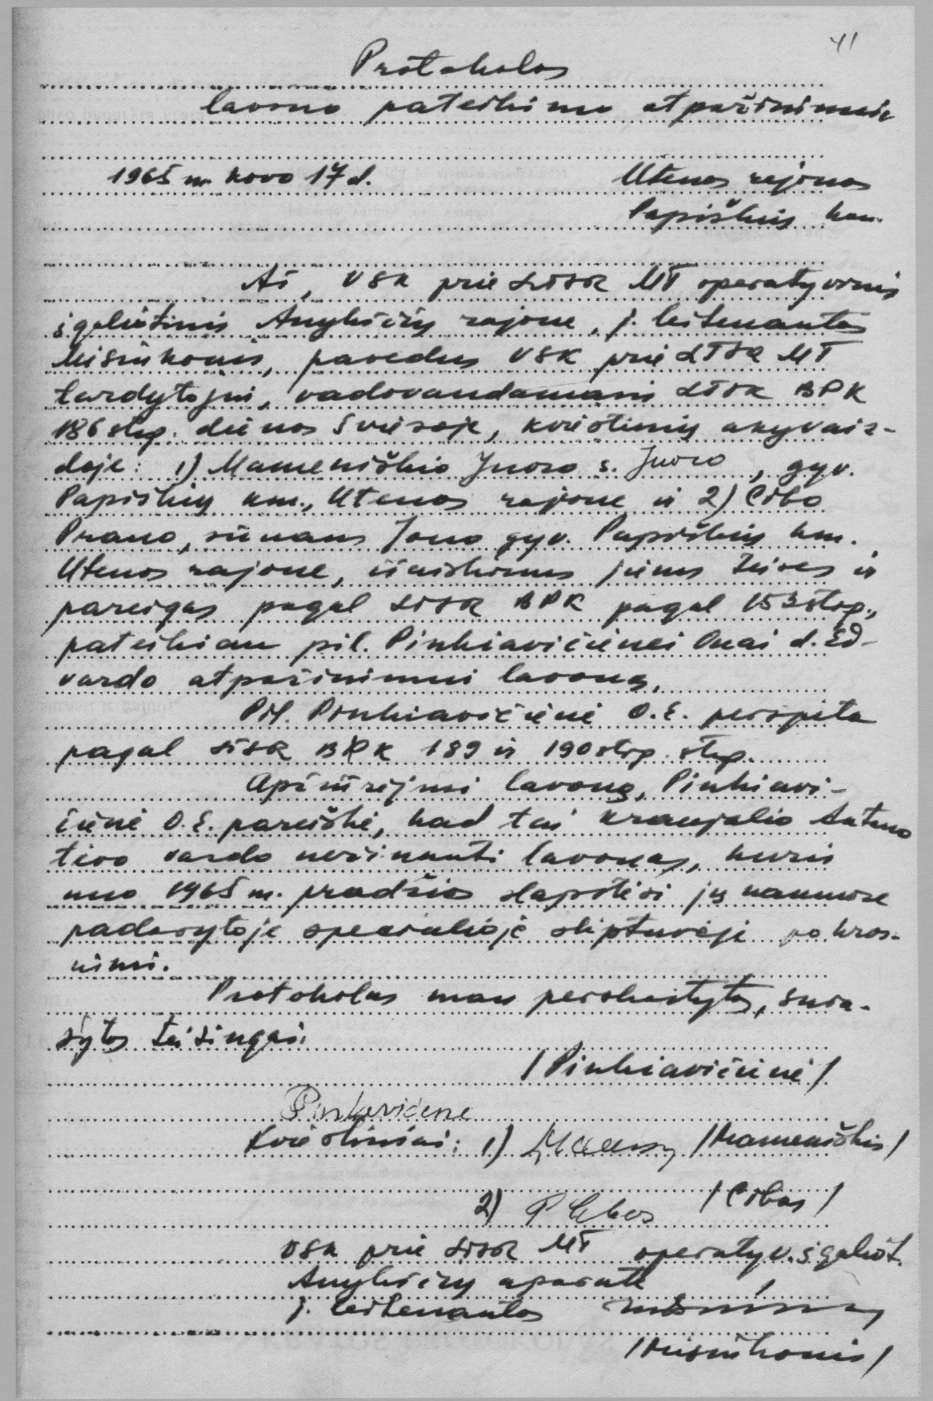 41
Protokolas
lavono pateikimo atpažinimui
1965 m. kovo 17 d. Utenos rajonas
Papiškių km.
Aš, VSK prie LTSR MT operatyvinis
įgaliotinis Anykščių rajone, j. leitenantas
Misiukonis, pavedus VSK prie LTSR MT
tardytojui, vadovaudamasis LTSR BPK
186 strp. dienos šviesoje, kviestinių akyvaiz-
doje: 1) Mameniškio Juozo s. Juozo, gyv.
Papiškių km., Utenos rajone ir 2) Cibo
Prano, sūnaus Jono gyv. Papiškių km.
Utenos rajone, išaiškinus jiems teises ir
pareigas pagal LTSR BPK pagal 153 strp.,
pateikiau pil. Pinkiavičienei Onai d. Ed-
vardo atpažinimui lavoną.
Pil. Pinkiavičienė O.E. perspėta
pagal LTSR BPK 189 ir 190 strp. strp.
Apžiūrėjusi lavoną, Pinkiavi-
čienė O.E. pareiškė, kad tai Kraujelio Antano
tėvo vardo nežinanti lavonas, kuris
nuo 1965 m. pradžios slapstėsi jų namuose
padarytoje specialioje slėptuvėje po kros-
nimi.
Protokolas man perskaitytas, sura-
šytas teisingai.
/Pinkiavičienė/
Pinkevičene
Kviestiniai: 1) /Mameniškis/
2) P Cibas /Cibas/
VSK prie LTSR MT operatyv. įgaliot.
Anykščių aparate
j. leitenantas
/Misiukonis/